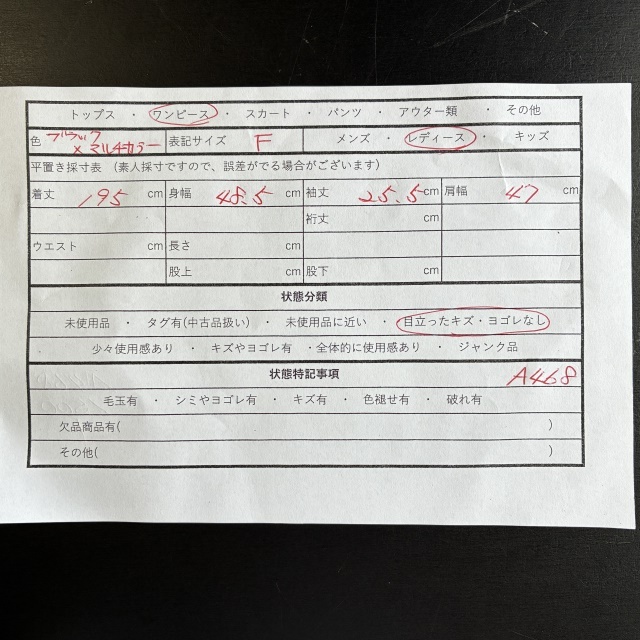 トップス ・ ワンピース ・ スカート ・ パンツ ・ アウター類 ・ その他
色 ブラック×マルチカラー 表記サイズ F メンズ ・ レディース ・ キッズ
平置き採寸表 (素人採寸ですので、誤差がでる場合がございます)
着丈 195 cm 身幅 48.5 cm 袖丈 25.5 cm 肩幅 47 cm
cm 裄丈 cm
ウエスト cm 長さ cm
股上 cm 股下 cm
状態分類
未使用品 ・ タグ有(中古品扱い) ・ 未使用品に近い ・ 目立ったキズ・ヨゴレなし
少々使用感あり ・ キズやヨゴレ有 ・全体的に使用感あり ・ ジャンク品
状態特記事項 A468
毛玉有 ・ シミやヨゴレ有 ・ キズ有 ・ 色褪せ有 ・ 破れ有
欠品商品有( )
その他( )